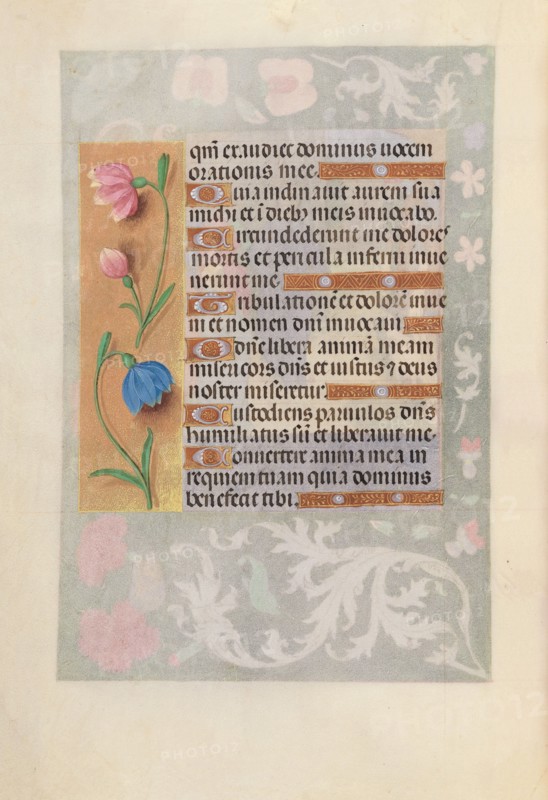 qm̄ exaudiet dominus vocem
orationis mee.
Quia inclinavit aurem sua
michi et ī dieb3 meis invocabo.
Circundederunt me dolores
mortis et pericula inferni inve
nerunt me.
Tribulationē et dolorē inve
ni et nomen dnī invocavi
O dn̄e libera animā meam
misericors dn̄s et iustus ⁊ deus
noster miseretur.
Custodiens parvulos dn̄s
humiliatus sū et liberavit me.
Convertere anima mea in
requiem tuam quia dominus
benefecit tibi.
PHOTO12